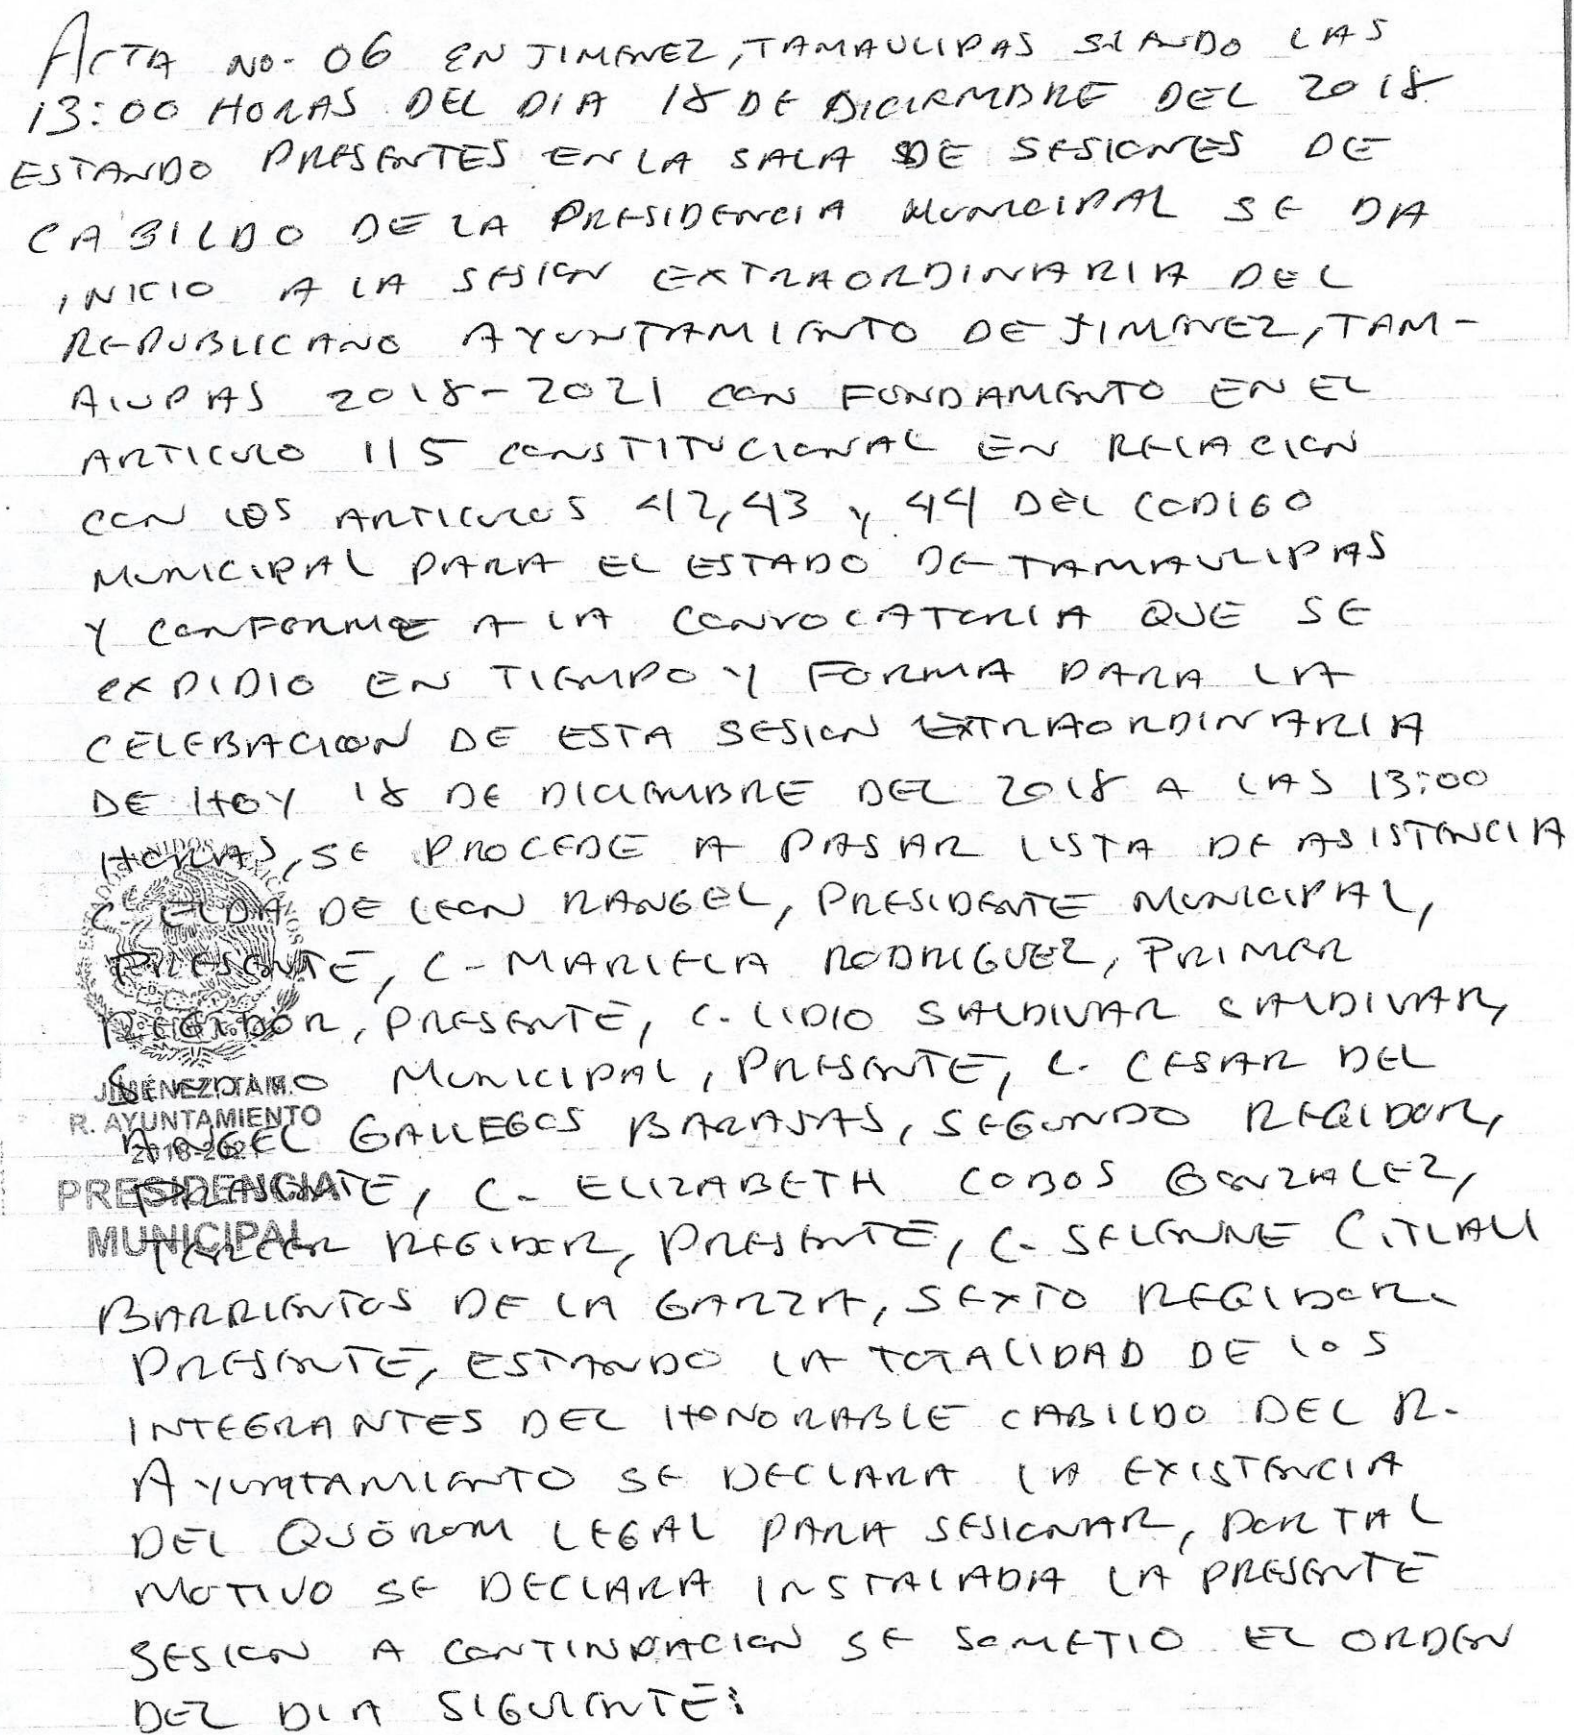 ACTA NO. 06 EN JIMENEZ, TAMAULIPAS SIENDO LAS
13:00 HORAS DEL DIA 18 DE DICIEMBRE DEL 2018
ESTANDO PRESENTES EN LA SALA DE SESIONES DE
CABILDO DE LA PRESIDENCIA MUNICIPAL SE DA
INICIO A LA SESION EXTRAORDINARIA DEL
REPUBLICANO AYUNTAMIENTO DE JIMENEZ, TAM-
AULIPAS 2018-2021 CON FUNDAMENTO EN EL
ARTICULO 115 CONSTITUCIONAL EN RELACION
CON LOS ARTICULOS 42, 43 y 44 DEL CODIGO
MUNICIPAL PARA EL ESTADO DE TAMAULIPAS
Y CONFORME A LA CONVOCATORIA QUE SE
EXPIDIO EN TIEMPO Y FORMA PARA LA
CELEBACION DE ESTA SESION EXTRAORDINARIA
DE HOY 18 DE DICIEMBRE DEL 2018 A LAS 13:00
HORAS, SE PROCEDE A PASAR LISTA DE ASISTENCIA
C. ELDA DE LEON RANGEL, PRESIDENTE MUNICIPAL,
PRESENTE, C- MARIELA RODRIGUEZ, PRIMER
REGIDOR, PRESENTE, C. LIDIO SALDIVAR SALDIVAR,
SINDICO MUNICIPAL, PRESENTE, C. CESAR DEL
JIMÉNEZ, TAM.
R. AYUNTAMIENTO
ANGEL GALLEGOS BARAJAS, SEGUNDO REGIDOR,
2018-2021
PRESENTE, C- ELIZABETH COBOS GONZALEZ,
PRESIDENCIA
MUNICIPAL
TERCER REGIDOR, PRESENTE, C- SELENNE CITLALI
BARRIENTOS DE LA GARZA, SEXTO REGIDOR.
PRESENTE, ESTANDO LA TOTALIDAD DE LOS
INTEGRANTES DEL HONORABLE CABILDO DEL R.
AYUNTAMIENTO SE DECLARA LA EXISTENCIA
DEL QUÓROM LEGAL PARA SESIONAR, POR TAL
MOTIVO SE DECLARA INSTALADA LA PRESENTE
SESION A CONTINUACION SE SOMETIO EL ORDEN
DEL DIA SIGUIENTE: